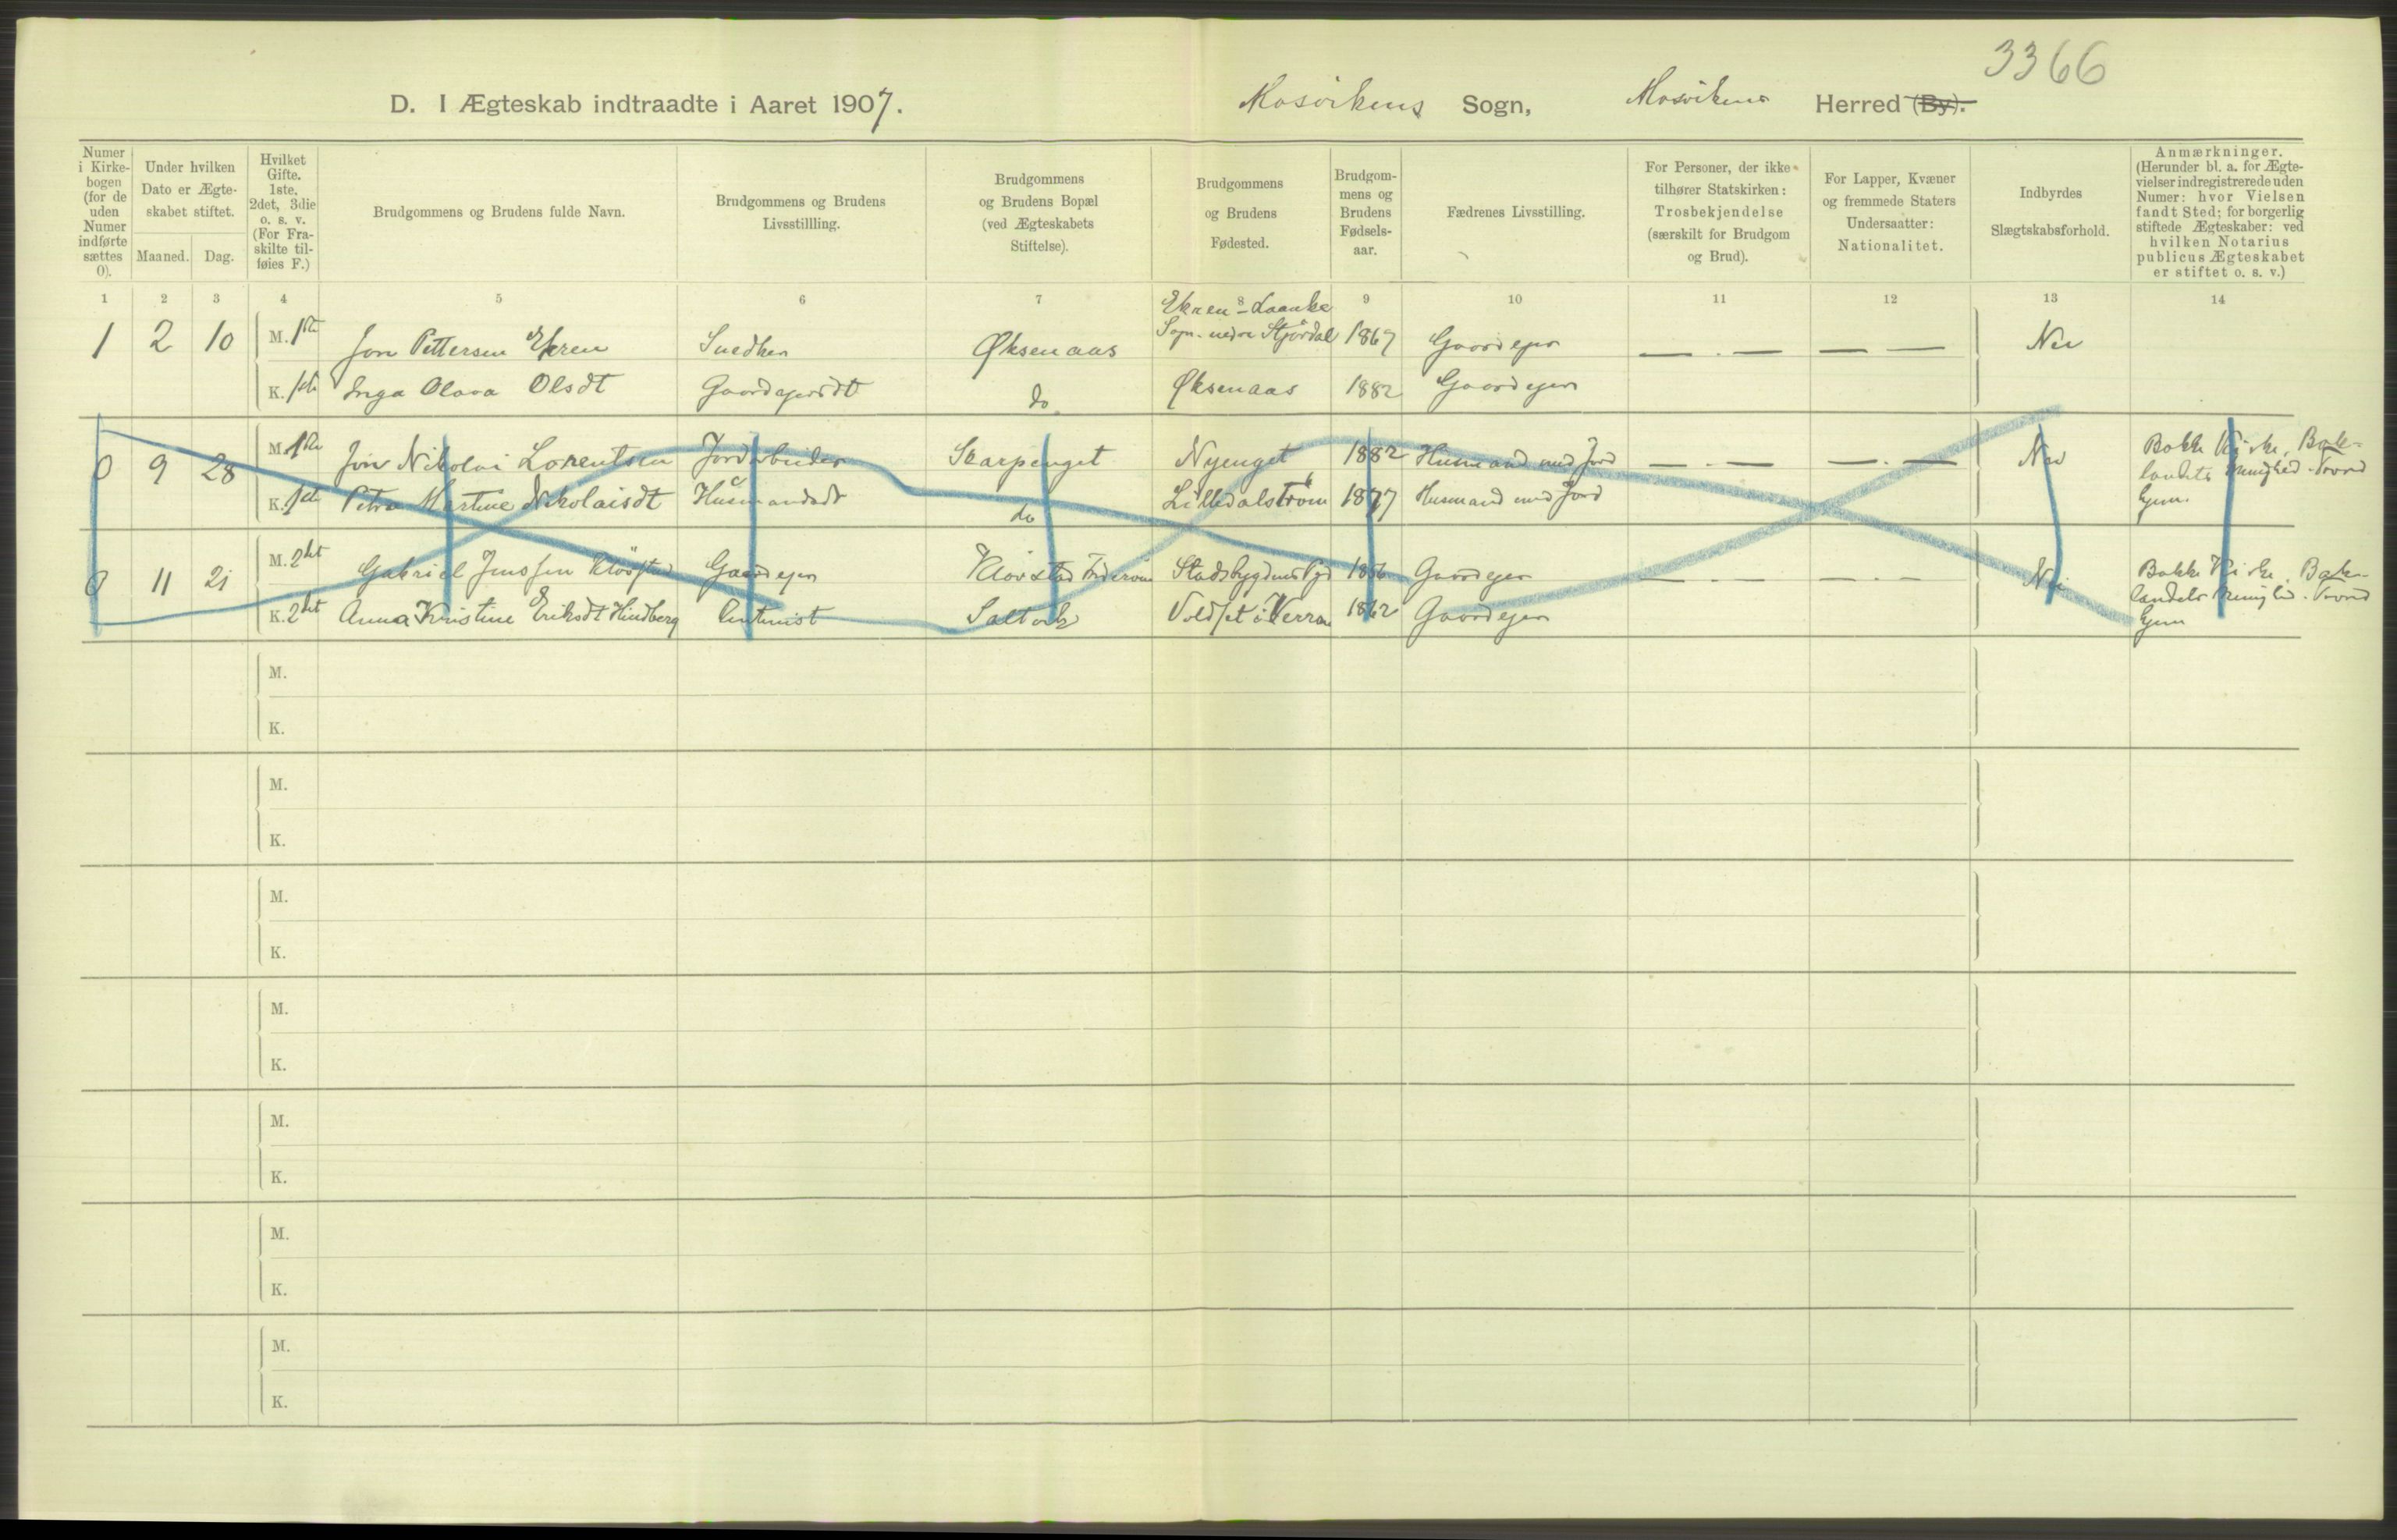 3366
D. I Ægteskab indtraadte i Aaret 1907. Mosvikens Sogn, Mosvikens Herred (By).
Numer i Kirke-bogen (for de uden Numer indførte sættes 0).
Under hvilken Dato er Ægte-skabet stiftet.
Maaned. Dag.
Hvilket Gifte. 1ste, 2det, 3die o. s. v. (For Fra-skilte til-føies F.)
Brudgommens og Brudens fulde Navn.
Brudgommens og Brudens Livsstillling.
Brudgommens og Brudens Bopæl (ved Ægteskabets Stiftelse).
Brudgommens og Brudens Fødested.
Brudgom-mens og Brudens Fødsels-aar.
Fædrenes Livsstilling.
For Personer, der ikke tilhører Statskirken: Trosbekjendelse (særskilt for Brudgom og Brud).
For Lapper, Kvæner og fremmede Staters Undersaatter: Nationalitet.
Indbyrdes Slægtskabsforhold.
Anmærkninger. (Herunder bl. a. for Ægte-vielser indregistrerede uden Numer: hvor Vielsen fandt Sted; for borgerlig stiftede Ægteskaber: ved hvilken Notarius publicus Ægteskabet er stiftet o. s. v.)
1 2 3 4 5 6 7 8 9 10 11 12 13 14
Ekren - Laanke
1 2 10 M. 1ste Jon Pettersen Ekren Snedker Øksenaas Sogn. nedre Stjørdal 1867 Gaardejer Nei
K. 1ste Inga Olava Olsdt Gaardejersdt do Øksenaas 1882 Gaardejer
0 9 28 M. 1ste Jon Nikolai Lorentsen Jordarbeider Skarpenget Nyenget 1882 Husmand med Jord Nei Bakke Kirke, Bak-
K. 1ste Petra Martine Nikolaisdt Husmandsdt do Lilledalstrøm 1877 Husmand med Jord landets Menighed. Trond
hjem.
0 11 21 M. 2det Gabriel Jenssen Kløvstad Gaardejer Kløvstad Stadsbygden 1856 Gaardejer Nei Bakke Kirke, Bak-
landets Menighed. Trond
K. 2det Anna Kristine Eriksdt Hindberg Saltvik Voldset i Verran 1862 Gaardejer hjem
M.
K.
M.
K.
M.
K.
M.
K.
M.
K.
M.
K.
M.
K.